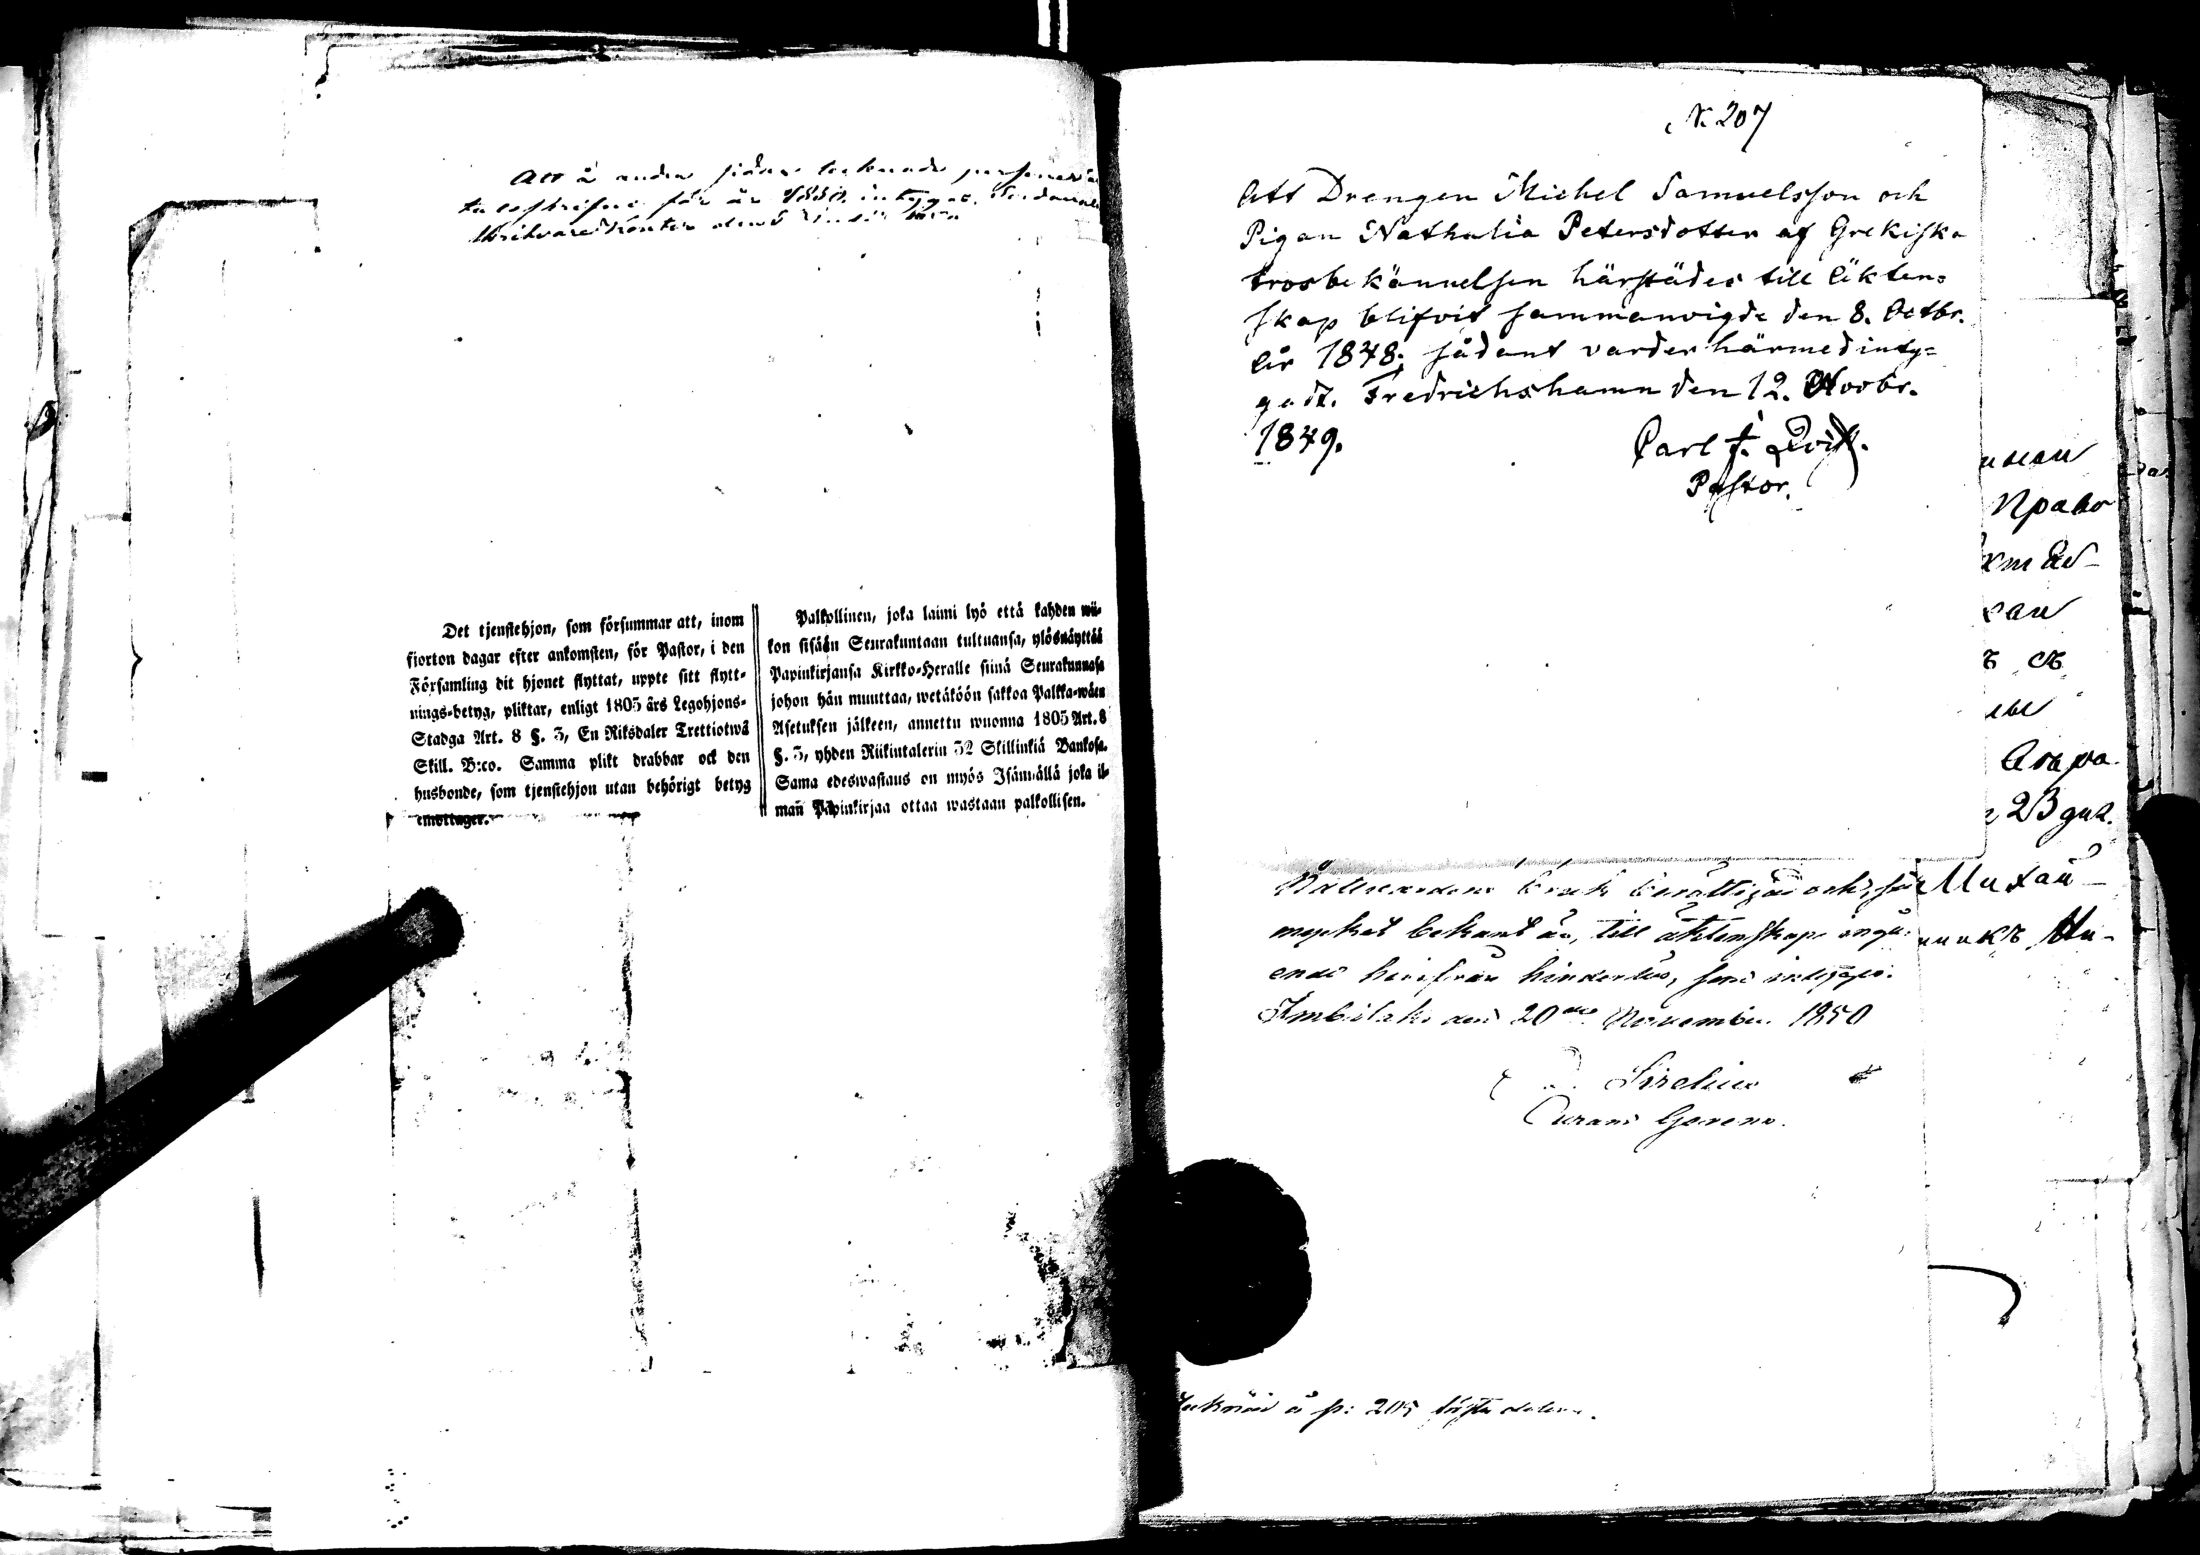 Att å andra sidan tecknade personer äro
talesskrifne för år 1850, intygas.
Det tjenstehjon, som försummar att, inom
fjorton dagar efter ankomsten, för Pastor, i den
Församling dit hjonet flyttat, uppte sitt flytt-
nings-betyg, pliktar, enligt 1805 års Legohjons-
Stadga Art. 8 §. 3, En Riksdaler Trettiotwå
Skill. B:co. Samma plikt drabbar ock den
husbonde, som tjenstehjon utan behörigt betyg
emottager.
Palkollinen, joka laimi lyö että kahden wii-
kon sisään Seurakuntaan tultuansa, ylösnäyttää
Papinkirjansa Kirkko-Heralle siinä Seurakunnasa
johon hän muuttaa, wetäköön sakkoa Palkka-wäen
Asetuksen jälkeen, annettu wuonna 1805 Art. 8
§. 3, yhden Riikintalerin 32 Skillinkiä Bankosa.
Sama edeswastaus on myös Isännällä joka il-
man Papinkirjaa ottaa wastaan palkollisen.
N. 207
Att Drengen Michel Samuelsson och
Pigan Nathalia Petersdotter af Grekiska
trosbekännelsen härstädes till äkten-
skap blifvit sammanvigde den 8. Octbr.
år 1848; sådant varder härmed inty-
gadt. Fredrichshamn den 12. Novbr.
1849.
Carl J.
Pastor.
Право
23 дня.
Михай
Nattvardens bruk berättigad och, så
mycket bekant är, till äktenskaps ingå-
ende härifrån hinderlös, som intygas.
Imbilaks den 20 November 1850
Sirelius
Curam Gerens.
å p: 205 första delen.